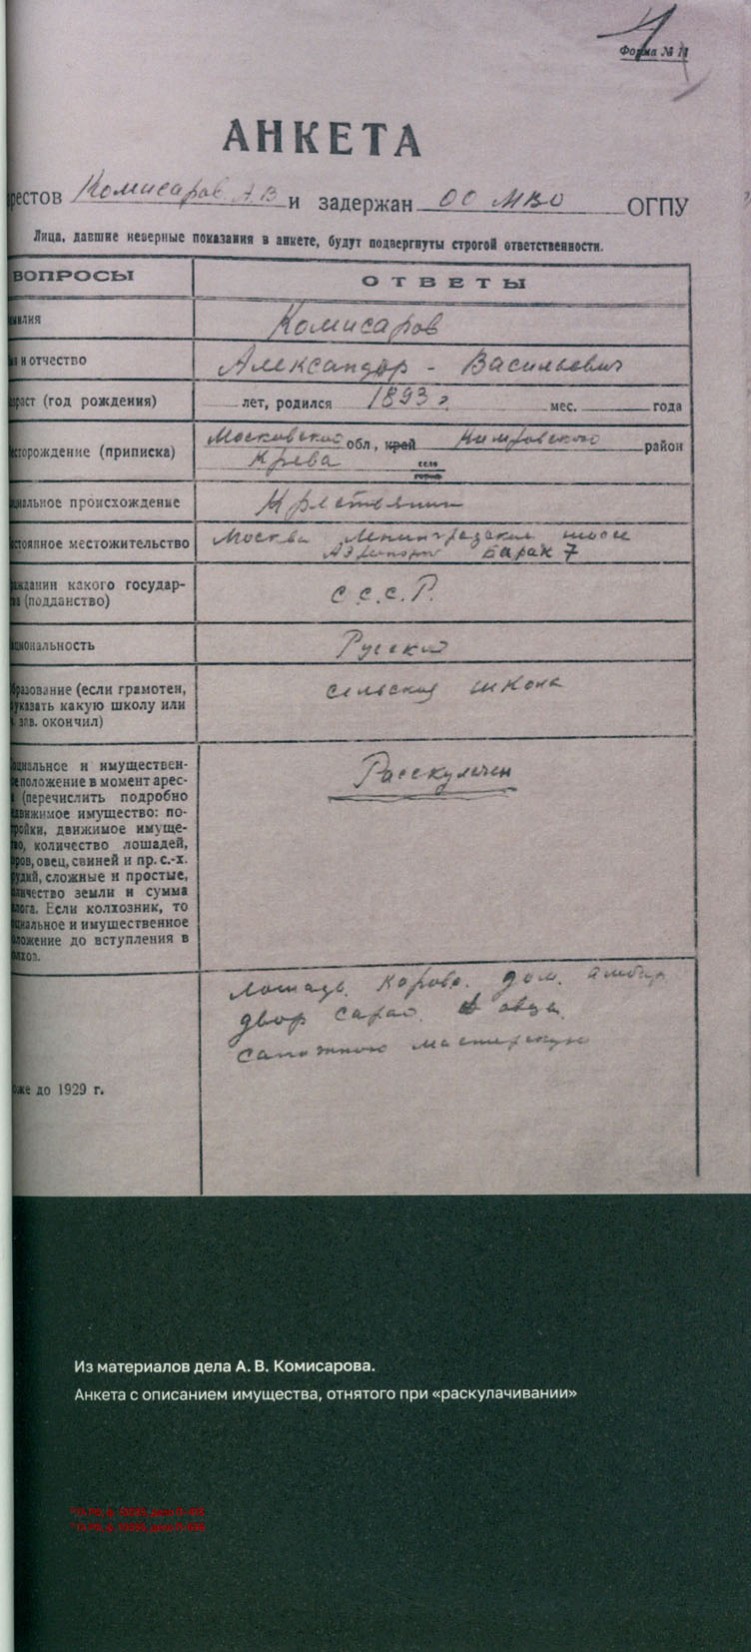 Форма № 11
АНКЕТА
рестов Комисаров А.В и задержан ОО МВО ОГПУ
Лица, давшие неверные показания в анкете, будут подвергнуты строгой ответственности.
ВОПРОСЫ
ОТВЕТЫ
милия
Комисаров
я и отчество
Александр - Васильевич
раст (год рождения)
лет, родился 1893 г. мес. года
есторождение (приписка)
Московской обл., край Кимровского район
Крева село
циальное происхождение
Крестьянин
стоянное местожительство
Москва Ленинградское шоссе
Барак 7
аждании какого государ-
ва (подданство)
С.С.С.Р.
циональность
Русский
бразование (если грамотен,
указать какую школу или
зав. окончил)
сельская школа
оциальное и имуществен-
е положение в момент арес-
(перечислить подробно
движимое имущество: по-
ройки, движимое имуще-
во, количество лошадей,
ров, овец, свиней и пр. с.-х.
удий, сложные и простые,
личество земли и сумма
лога. Если колхозник, то
циальное и имущественное
ложение до вступления в
лхоз.
Расскулачен
оже до 1929 г.
лошадь. корова. дом. амбар
двор сарай. овца.
сапожною мастерскую
Из материалов дела А. В. Комисарова.
Анкета с описанием имущества, отнятого при «раскулачивании»